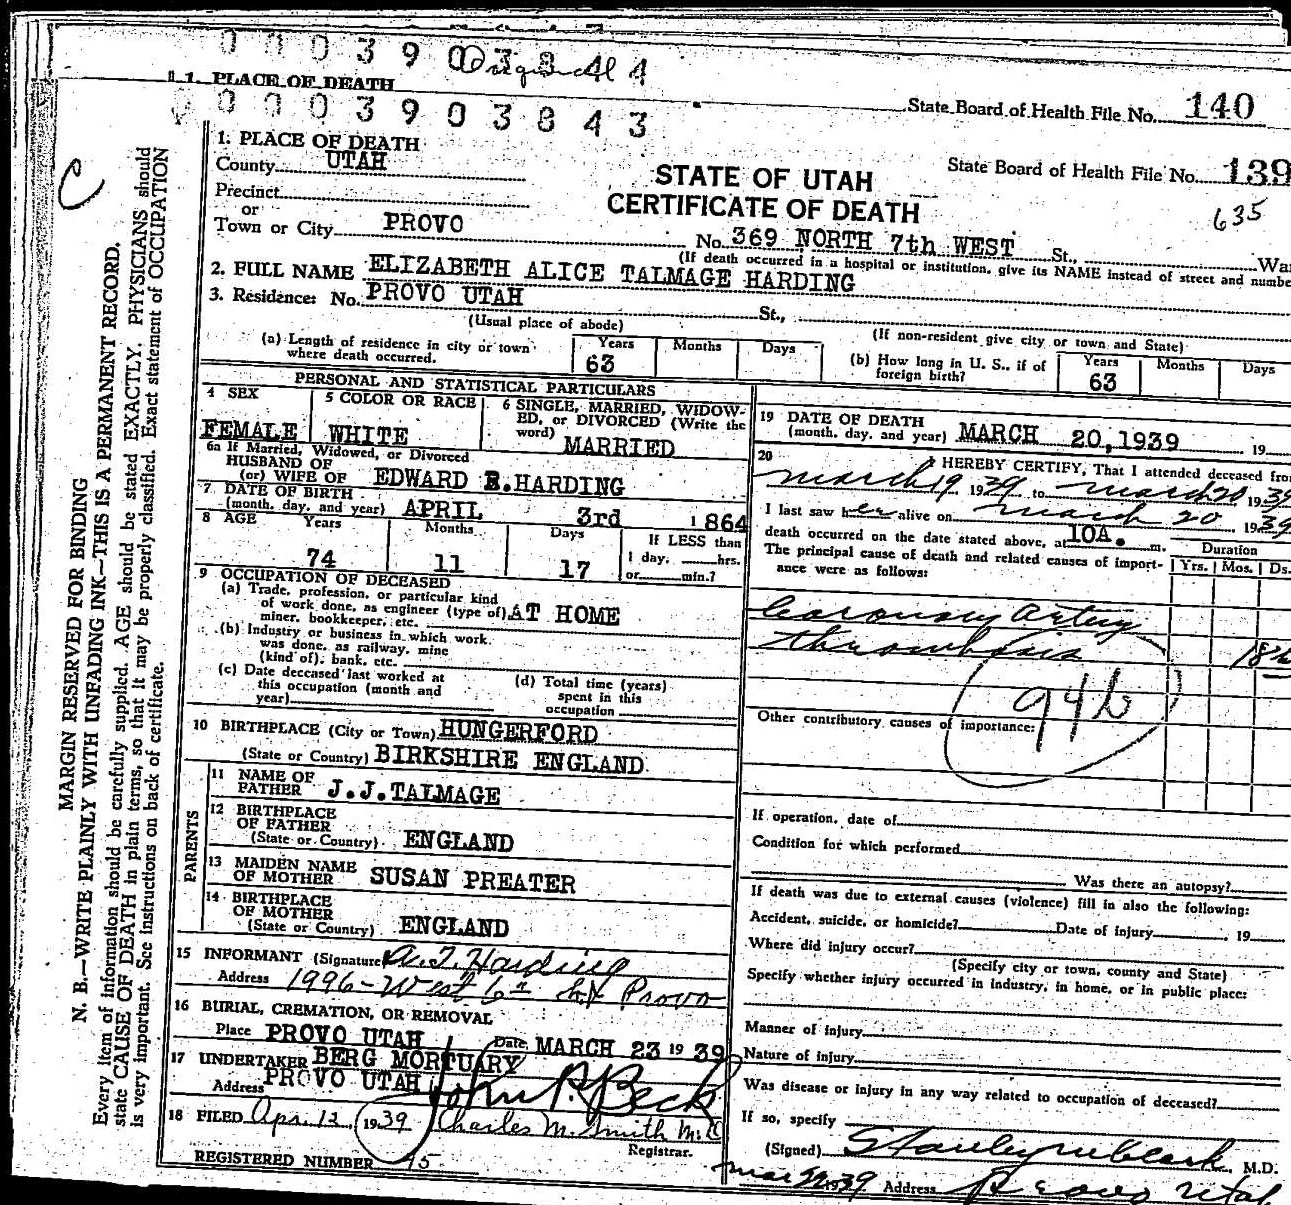 0 0 0 3 9 0 3 8 4 4
Original
1. PLACE OF DEATH
State Board of Health File No. 140
0 0 0 3 9 0 3 8 4 3
C
1. PLACE OF DEATH
County UTAH
Precinct
or
Town or City PROVO
STATE OF UTAH
CERTIFICATE OF DEATH
State Board of Health File No. 139
635
No. 369 NORTH 7th WEST St.,
(If death occurred in a hospital or institution, give its NAME instead of street and numbe
2. FULL NAME ELIZABETH ALICE TALMAGE HARDING
3. Residence: No. PROVO UTAH St.,
(Usual place of abode)
(If non-resident give city or town and State)
(a) Length of residence in city or town where death occurred. Years 63 Months Days
(b) How long in U. S., if of foreign birth? Years 63 Months Days
PERSONAL AND STATISTICAL PARTICULARS
4 SEX FEMALE
5 COLOR OR RACE WHITE
6 SINGLE, MARRIED, WIDOW-
ED, or DIVORCED (Write the
word) MARRIED
6a If Married, Widowed, or Divorced
HUSBAND OF
(or) WIFE OF EDWARD E. HARDING
7 DATE OF BIRTH
(month, day, and year) APRIL 3rd 1864
8 AGE Years 74 Months 11 Days 17
If LESS than
1 day, hrs.
or min.?
9 OCCUPATION OF DECEASED
(a) Trade, profession, or particular kind
of work done, as engineer (type of) AT HOME
miner, bookkeeper, etc.
(b) Industry or business in which work
was done, as railway, mine
(kind of), bank, etc.
(c) Date deceased last worked at
this occupation (month and
year)
(d) Total time (years)
spent in this
occupation
10 BIRTHPLACE (City or Town) HUNGERFORD
(State or Country) BIRKSHIRE ENGLAND
PARENTS
11 NAME OF
FATHER J.J.TALMAGE
12 BIRTHPLACE
OF FATHER
(State or Country) ENGLAND
13 MAIDEN NAME
OF MOTHER SUSAN PREATER
14 BIRTHPLACE
OF MOTHER
(State or Country) ENGLAND
15 INFORMANT (Signature) Harding
Address 1996-West 6th Provo
16 BURIAL, CREMATION, OR REMOVAL
Place PROVO UTAH Date MARCH 23 19 39
17 UNDERTAKER BERG MORTUARY
Address PROVO UTAH John P. Beck
18 FILED Apr. 12, 1939 Charles M. Smith M.D
Registrar.
REGISTERED NUMBER 95
19 DATE OF DEATH
(month, day, and year) MARCH 20,1939 19
20 I HEREBY CERTIFY, That I attended deceased fro
March 19 1939 to March 20 1939
I last saw her alive on March 20 1939
death occurred on the date stated above, at 10A. m.
The principal cause of death and related causes of import-
ance were as follows:
Duration
Yrs. Mos. Ds.
Coronary artery
thrombosis
94b
Other contributory causes of importance:
If operation, date of
Condition for which performed
Was there an autopsy?
If death was due to external causes (violence) fill in also the following:
Accident, suicide, or homicide? Date of injury , 19
Where did injury occur?
(Specify city or town, county and State)
Specify whether injury occurred in industry, in home, or in public place:
Manner of injury
Nature of injury
Was disease or injury in any way related to occupation of deceased?
If so, specify
(Signed) Stanley M. Clark M.D.
Mar 1939 Address Provo Utah
MARGIN RESERVED FOR BINDING
N. B.—WRITE PLAINLY WITH UNFADING INK—THIS IS A PERMANENT RECORD.
Every item of information should be carefully supplied. AGE should be stated EXACTLY. PHYSICIANS should
state CAUSE OF DEATH in plain terms, so that it may be properly classified. Exact statement of OCCUPATION
is very important. See instructions on back of certificate.